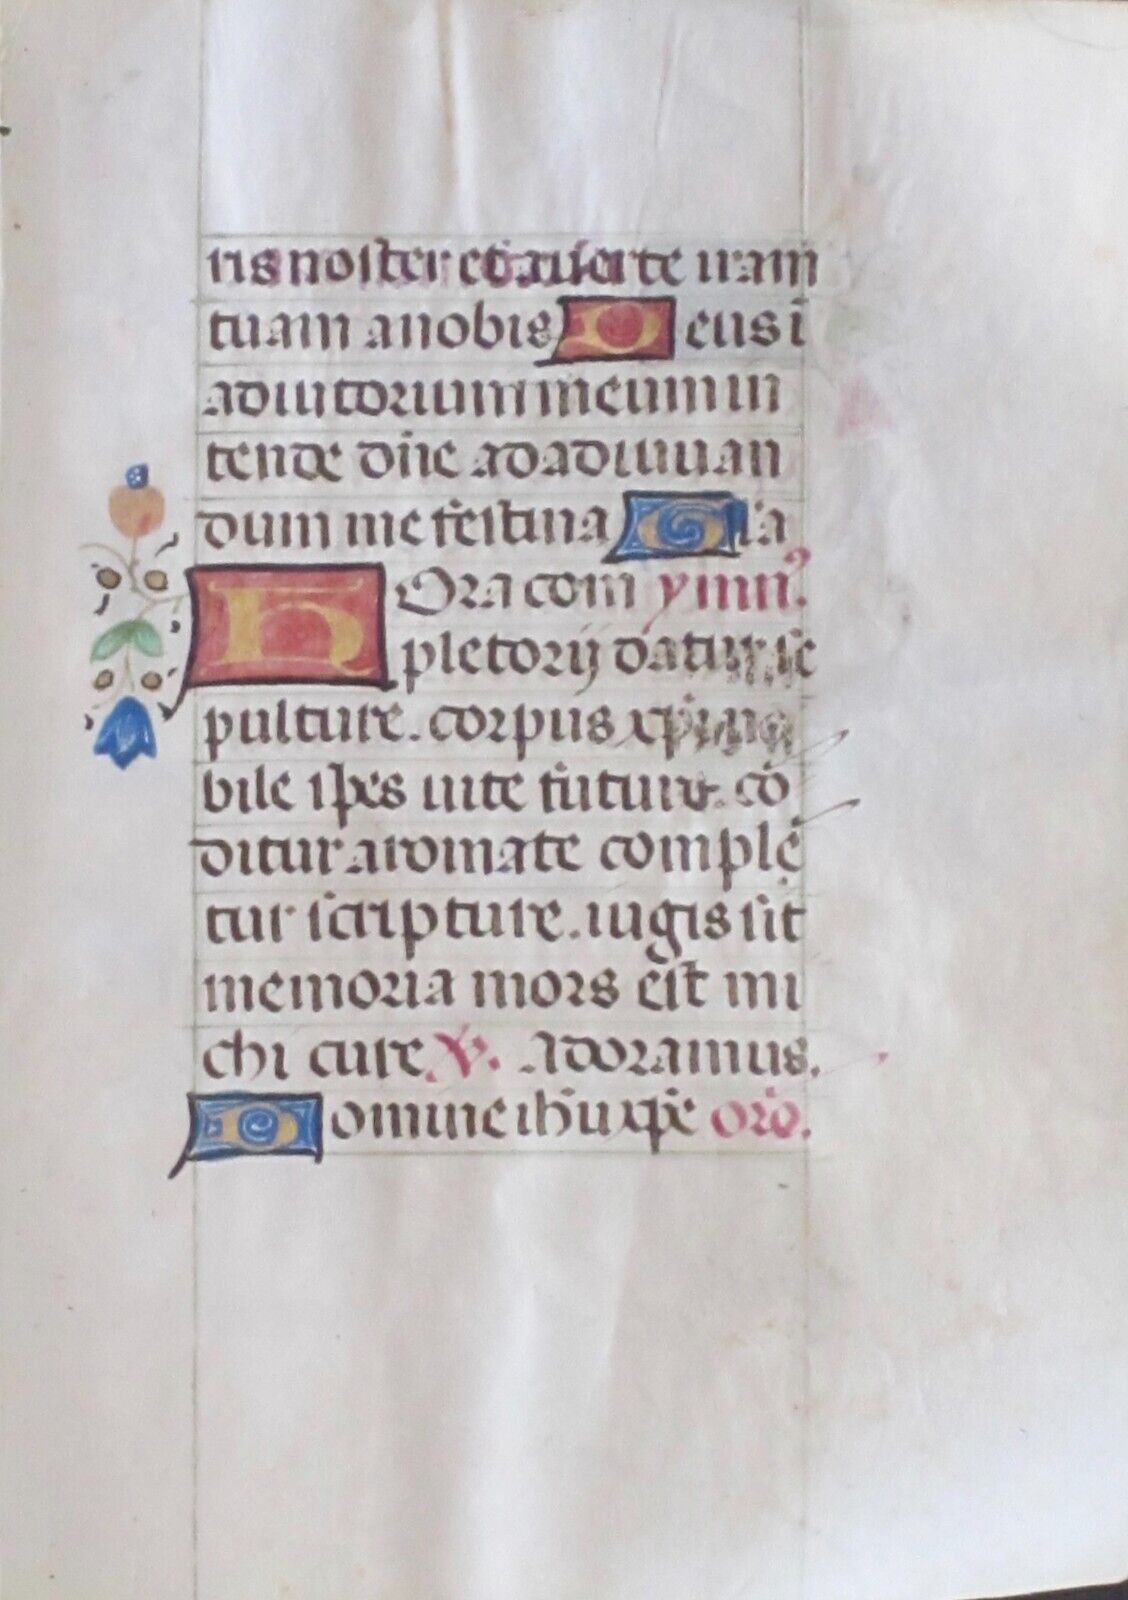 ris noster et auerte iram
tuam a nobis Deus ī
adiutorium meum in
tende dn̄e ad adiuuan
dum me festina Gl̄a
Hora com ymn⁹.
pletorij datur se
pulture. corpus xp̄i no
bile spes uite future. cō
ditur aromate complē
tur scripture. iugis sit
memoria mors ēst mi
chi cure ℣. Adoramus.
Domine ih̄u xp̄e or̄o.